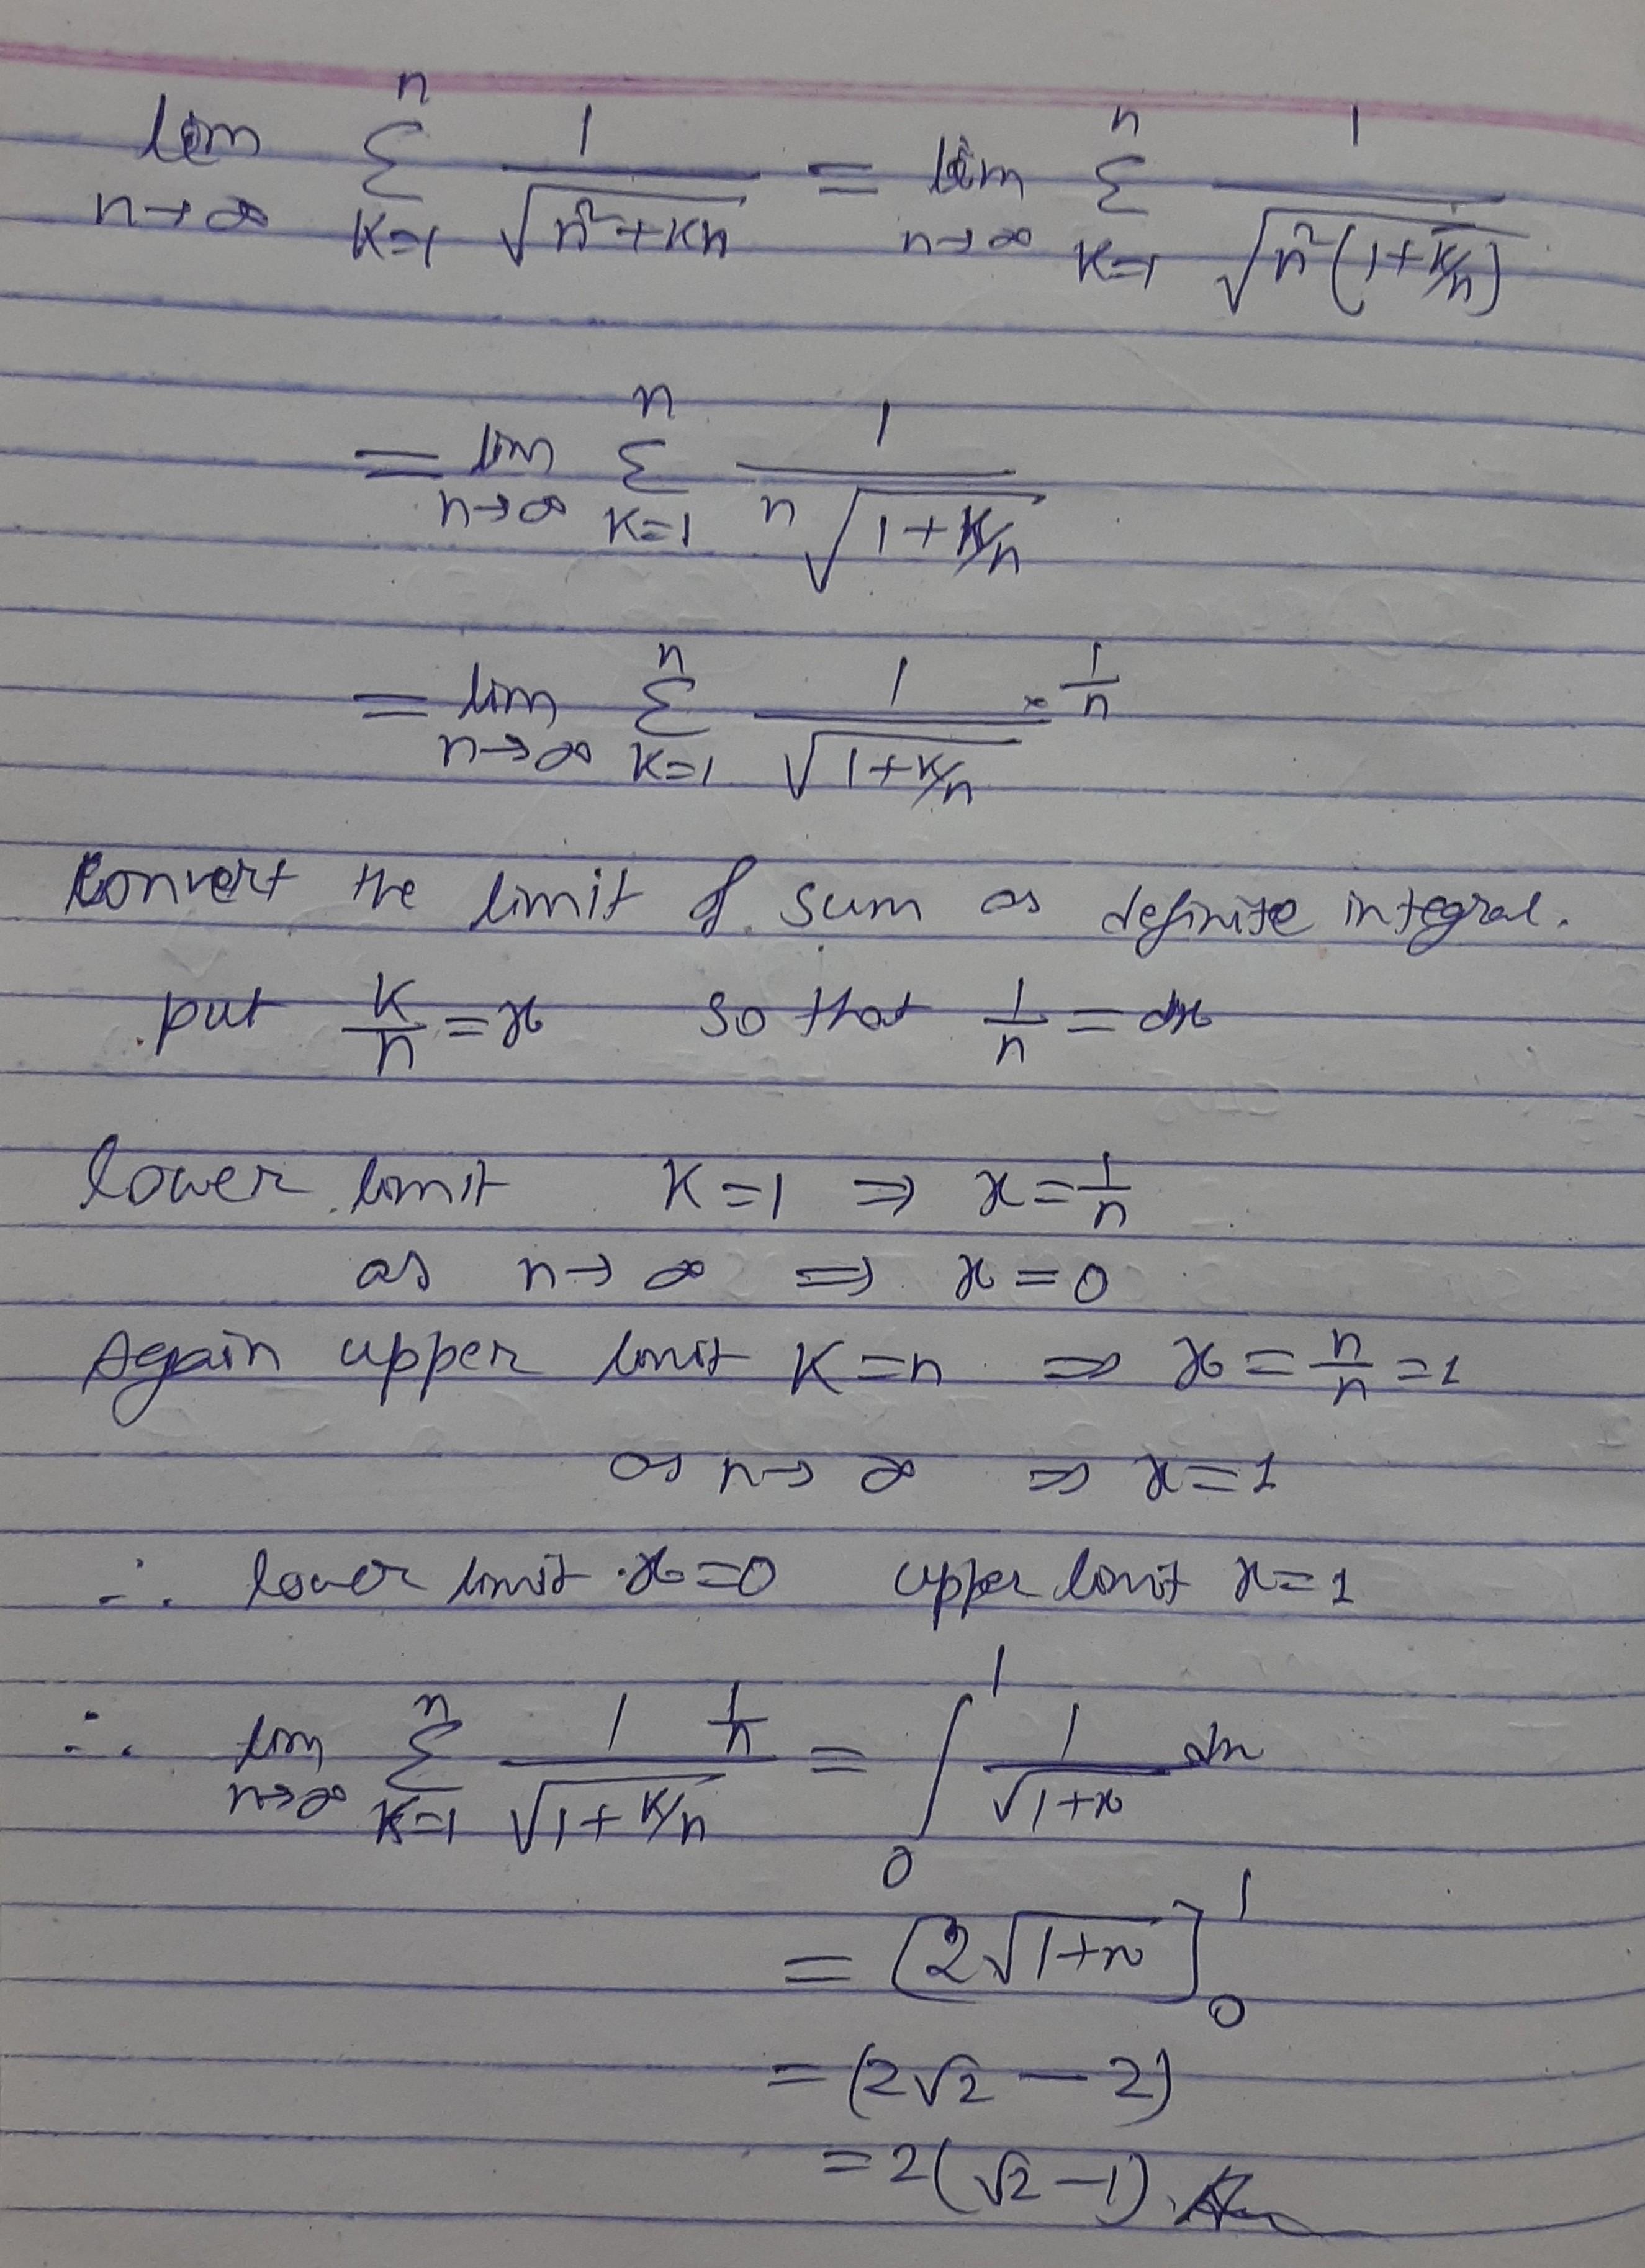 lim n→∞ Σ K=1 n 1/√(n²+Kn) = lim n→∞ Σ K=1 n 1/√(n²(1+K/n))
= lim n→∞ Σ K=1 n 1/(n√(1+K/n))
= lim n→∞ Σ K=1 n 1/√(1+K/n) × 1/n
Convert the limit of sum as definite integral.
put K/n = x so that 1/n = dx
lower limit K=1 ⇒ x = 1/n
as n→∞ ⇒ x=0
Again upper limit K=n ⇒ x = n/n = 1
as n→∞ ⇒ x=1
∴ lower limit x=0 upper limit x=1
∴ lim n→∞ Σ K=1 n 1/√(1+K/n) 1/n = ∫₀¹ 1/√(1+x) dx
= [2√(1+x)]₀¹
= (2√2 − 2)
= 2(√2 − 1). Ans